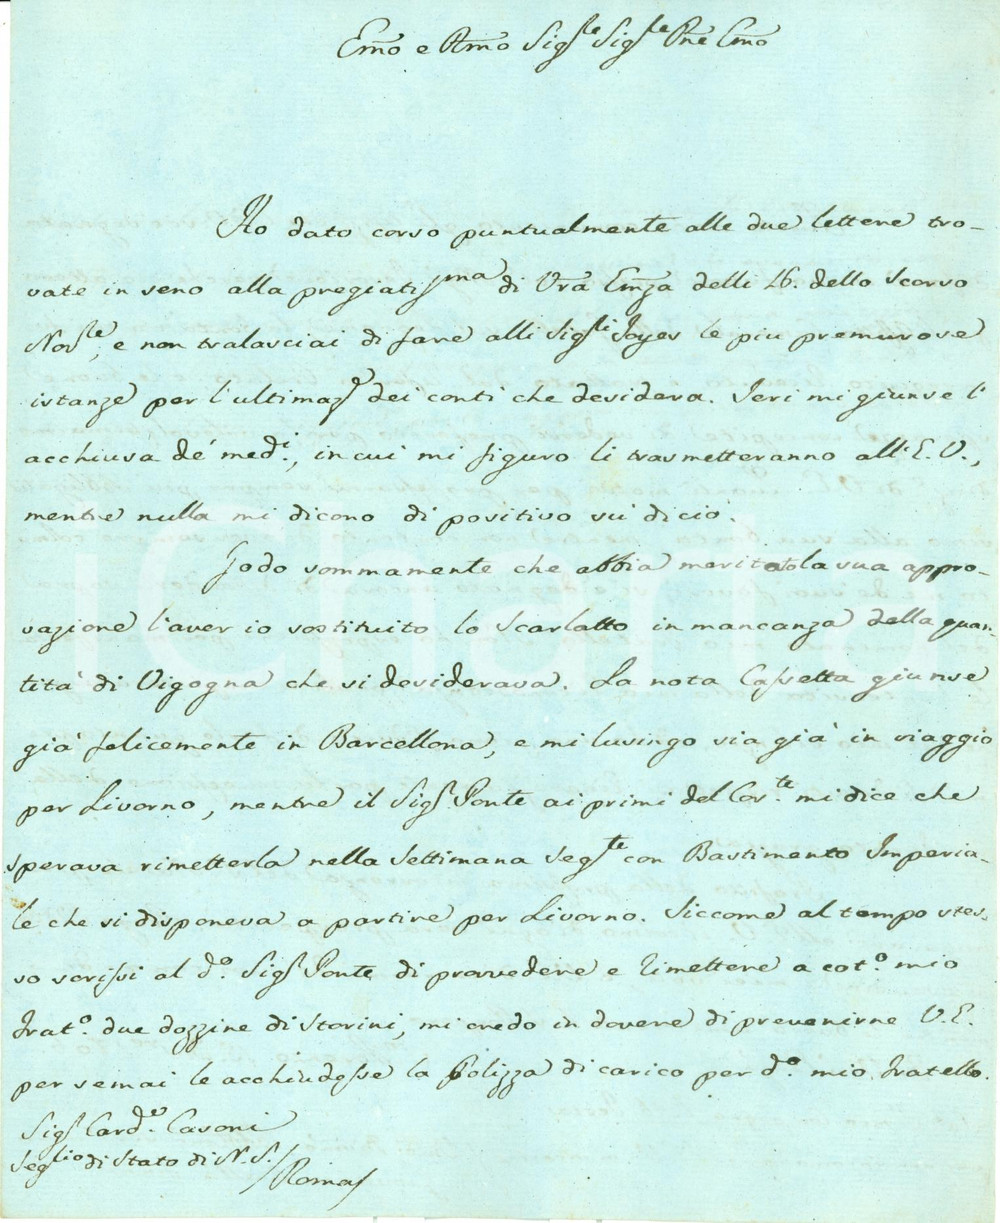 Emo e Rmo Sigre Sigre Pne Cmo
Ho dato corso puntualmente alle due lettere tro-
vate in seno alla pregiatisma di Vra Emza delli 26. dello scorso
Nobre, e non tralasciai di fare alli Sigri Joyes le piu premurose
istanze per l'ultimaze dei conti che desidera. Ieri mi giunse l'
acchiusa de' medi, in cui mi figuro li trasmetteranno all'E. V.,
mentre nulla mi dicono di positivo su di ciò.
Godo sommamente che abbia meritato la sua appro-
vazione l'aver io sostituito lo Scarlatto in mancanza della quan-
tità di Vigogna che si desiderava. La nota Cassetta giunse
già felicemente in Barcellona, e mi lusingo sia già in viaggio
per Livorno, mentre il Sigr Ponte ai primi del Corte mi dice che
sperava rimetterla nella Settimana segte con Bastimento Imperia-
le che si disponeva a partire per Livorno. Siccome al tempo stes-
so scrissi al do. Sigr Ponte di provvedere e rimettere a coto. mio
frato. due dozzine di storini, mi credo in dovere di prevenirne V.E.
per se mai le acchiudesse la Polizza di carico per do. mio fratello.
Sigr Carde. Casoni
Segrio di Stato di N. S. / Roma /
iCharta